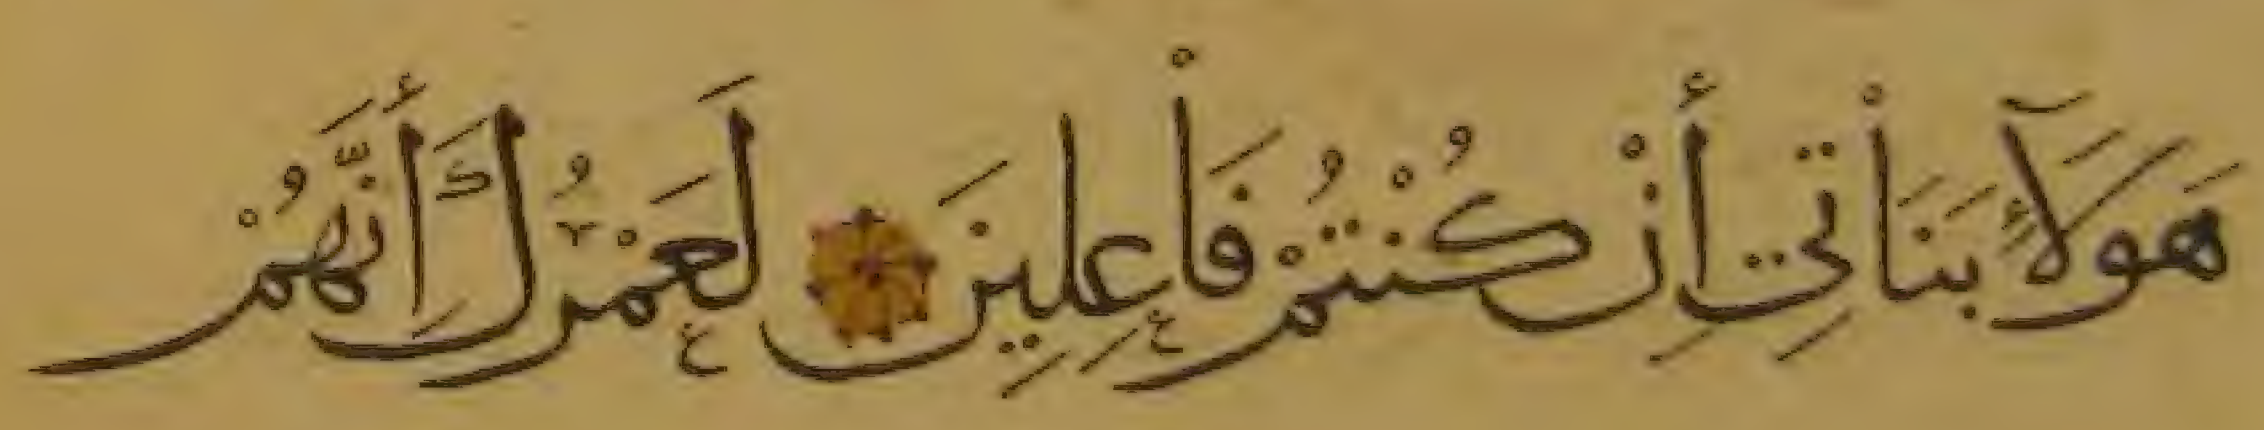 هَوَلَآئِ بَنَاْتِيْ أِنْ كُنْتُمْ فَاْعِلِيْنَ ۝ لَعَمْرُكَ أَِنَّهُمْ